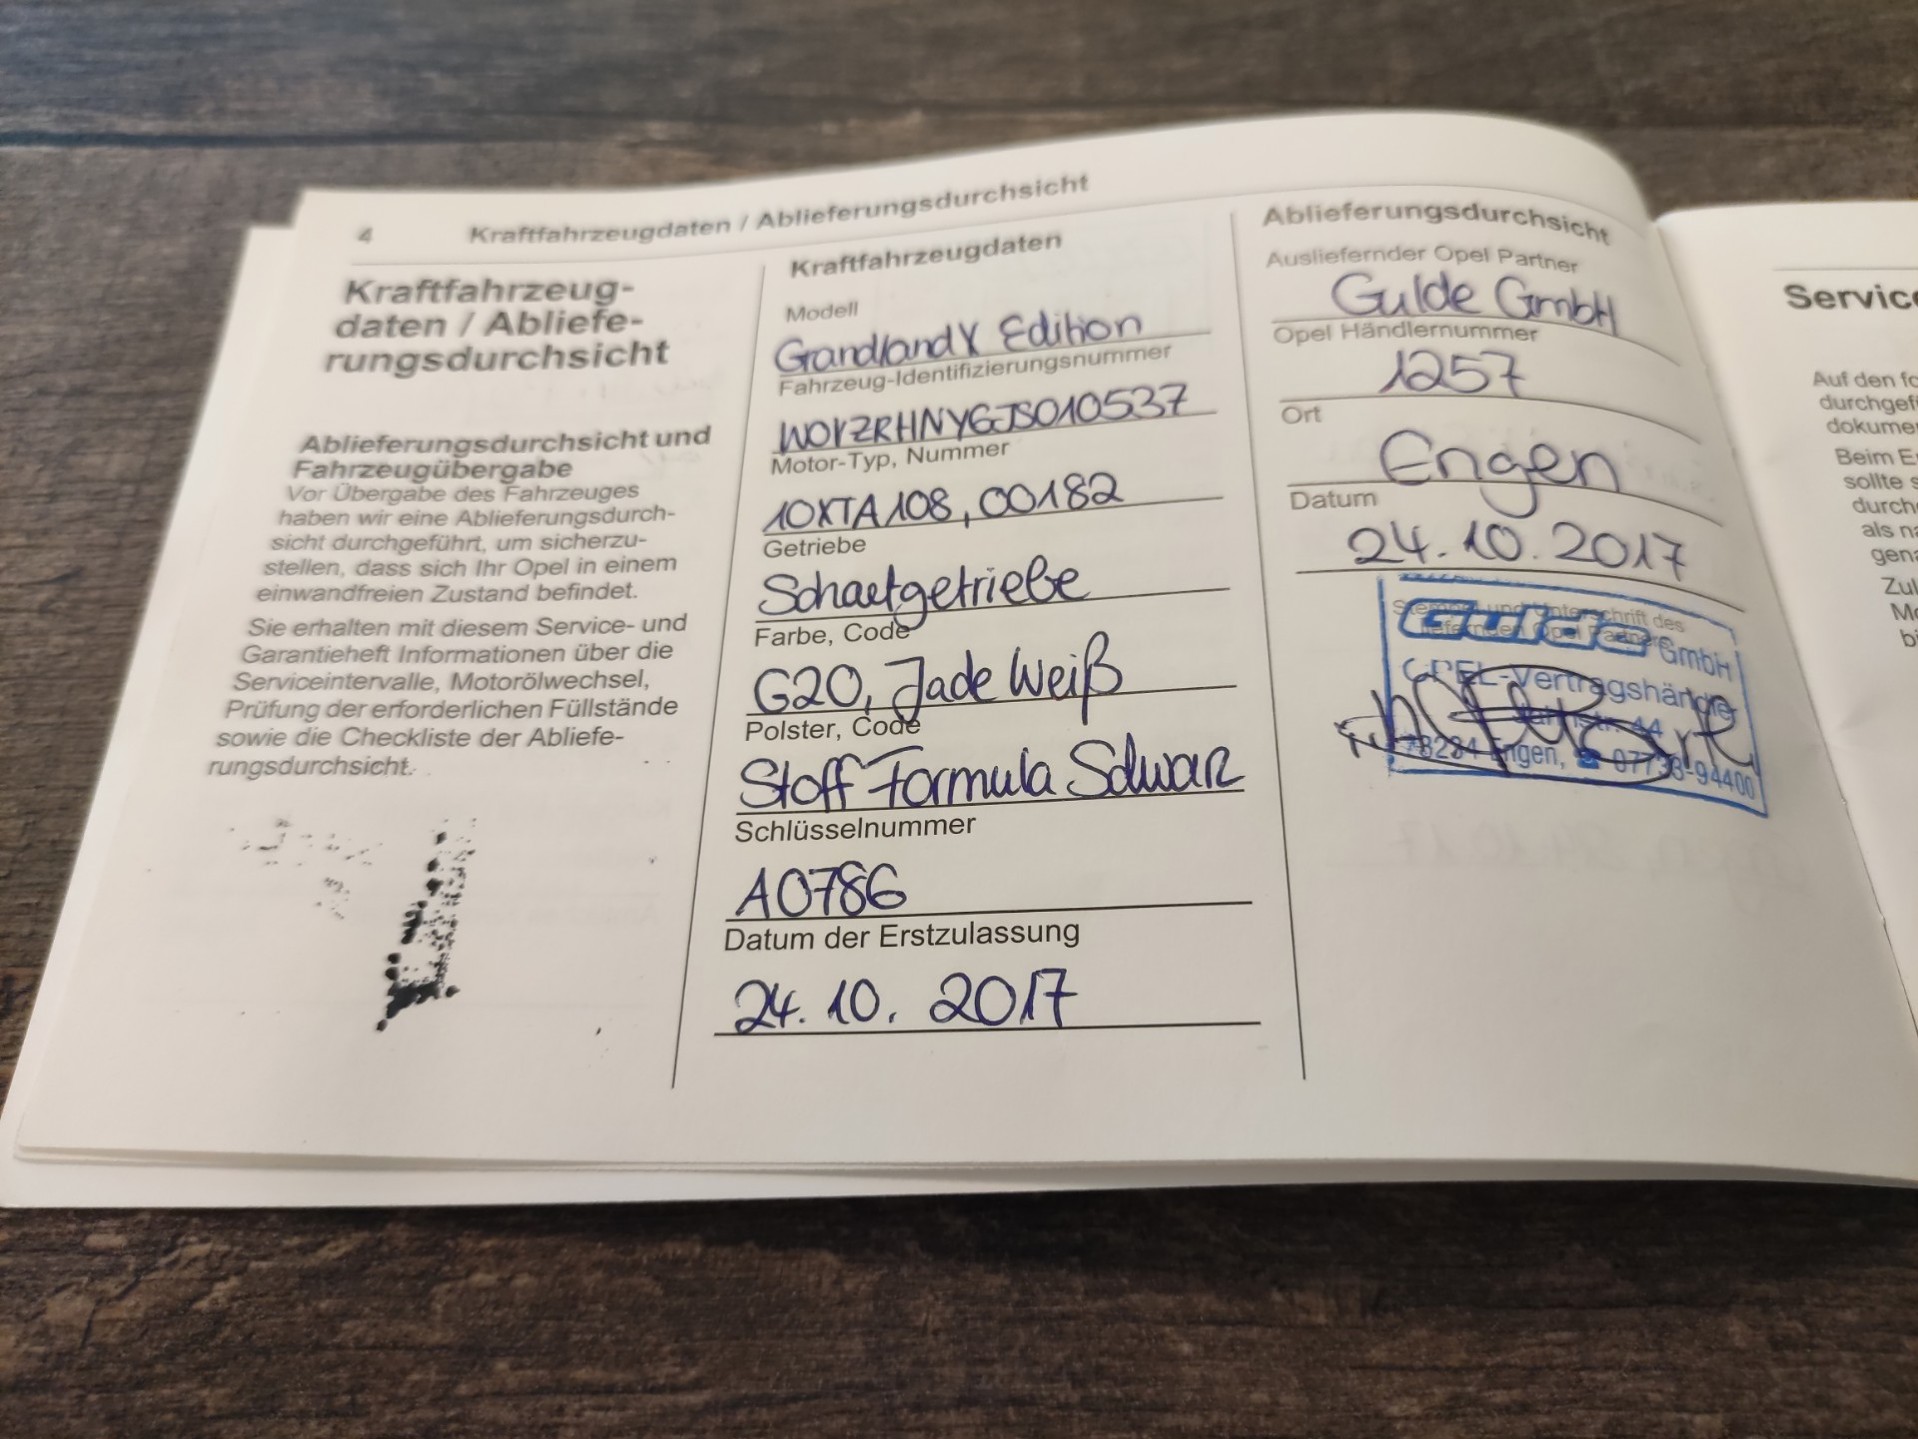 4 Kraftfahrzeugdaten / Ablieferungsdurchsicht
Kraftfahrzeug-
daten / Abliefe-
rungsdurchsicht
Ablieferungsdurchsicht und
Fahrzeugübergabe
Vor Übergabe des Fahrzeuges
haben wir eine Ablieferungsdurch-
sicht durchgeführt, um sicherzu-
stellen, dass sich Ihr Opel in einem
einwandfreien Zustand befindet.
Sie erhalten mit diesem Service- und
Garantieheft Informationen über die
Serviceintervalle, Motorölwechsel,
Prüfung der erforderlichen Füllstände
sowie die Checkliste der Abliefe-
rungsdurchsicht.
Kraftfahrzeugdaten
Modell
Grandland X Edition
Fahrzeug-Identifizierungsnummer
W0VZRHNYGJS010537
Motor-Typ, Nummer
10XTA108, 00182
Getriebe
Schaltgetriebe
Farbe, Code
G20, Jade Weiß
Polster, Code
Stoff Formula Schwarz
Schlüsselnummer
A0786
Datum der Erstzulassung
24.10.2017
Ablieferungsdurchsicht
Ausliefernder Opel Partner
Gulde GmbH
Opel Händlernummer
1257
Ort
Engen
Datum
24.10.2017
Stempel und Unterschrift des
liefernden Opel Partners
Gulde GmbH
OPEL-Vertragshändler
44
78234 Engen, ☎ 07733-94400
Service
Auf den
durchgef
dokumen
Beim
sollte
durch
als
gena
Zul